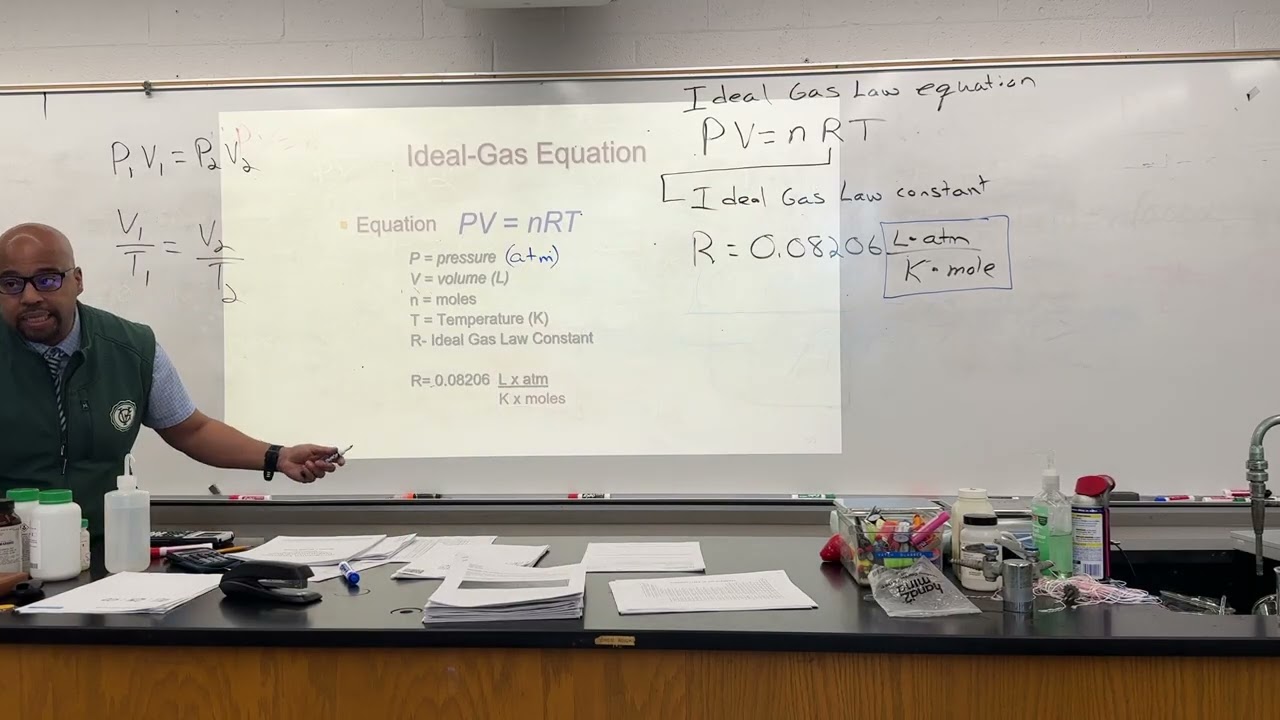 P₁V₁ = P₂V₂
V₁/T₁ = V₂/T₂
Ideal-Gas Equation
Equation PV = nRT
P = pressure (atm)
V = volume (L)
n = moles
T = Temperature (K)
R- Ideal Gas Law Constant
R= 0.08206 L x atm
K x moles
Ideal Gas Law equation
PV = nRT
Ideal Gas Law constant
R = 0.08206 L • atm
K • mole